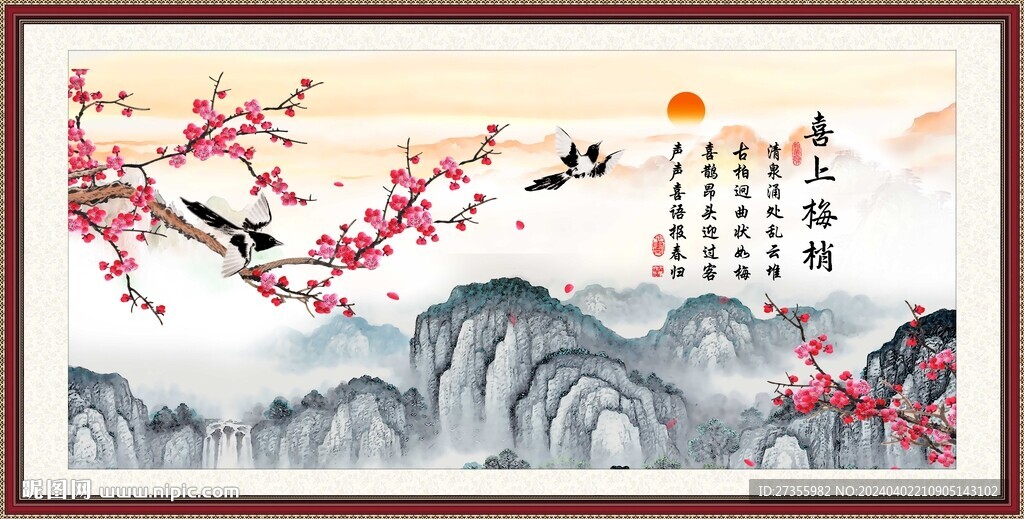 喜上梅梢
清泉涌处乱云堆
古柏迥曲状如梅
喜鹊昂头迎过客
声声喜语报春归
昵图网 www.nipic.com
ID:27355982 NO:20240402210905143102